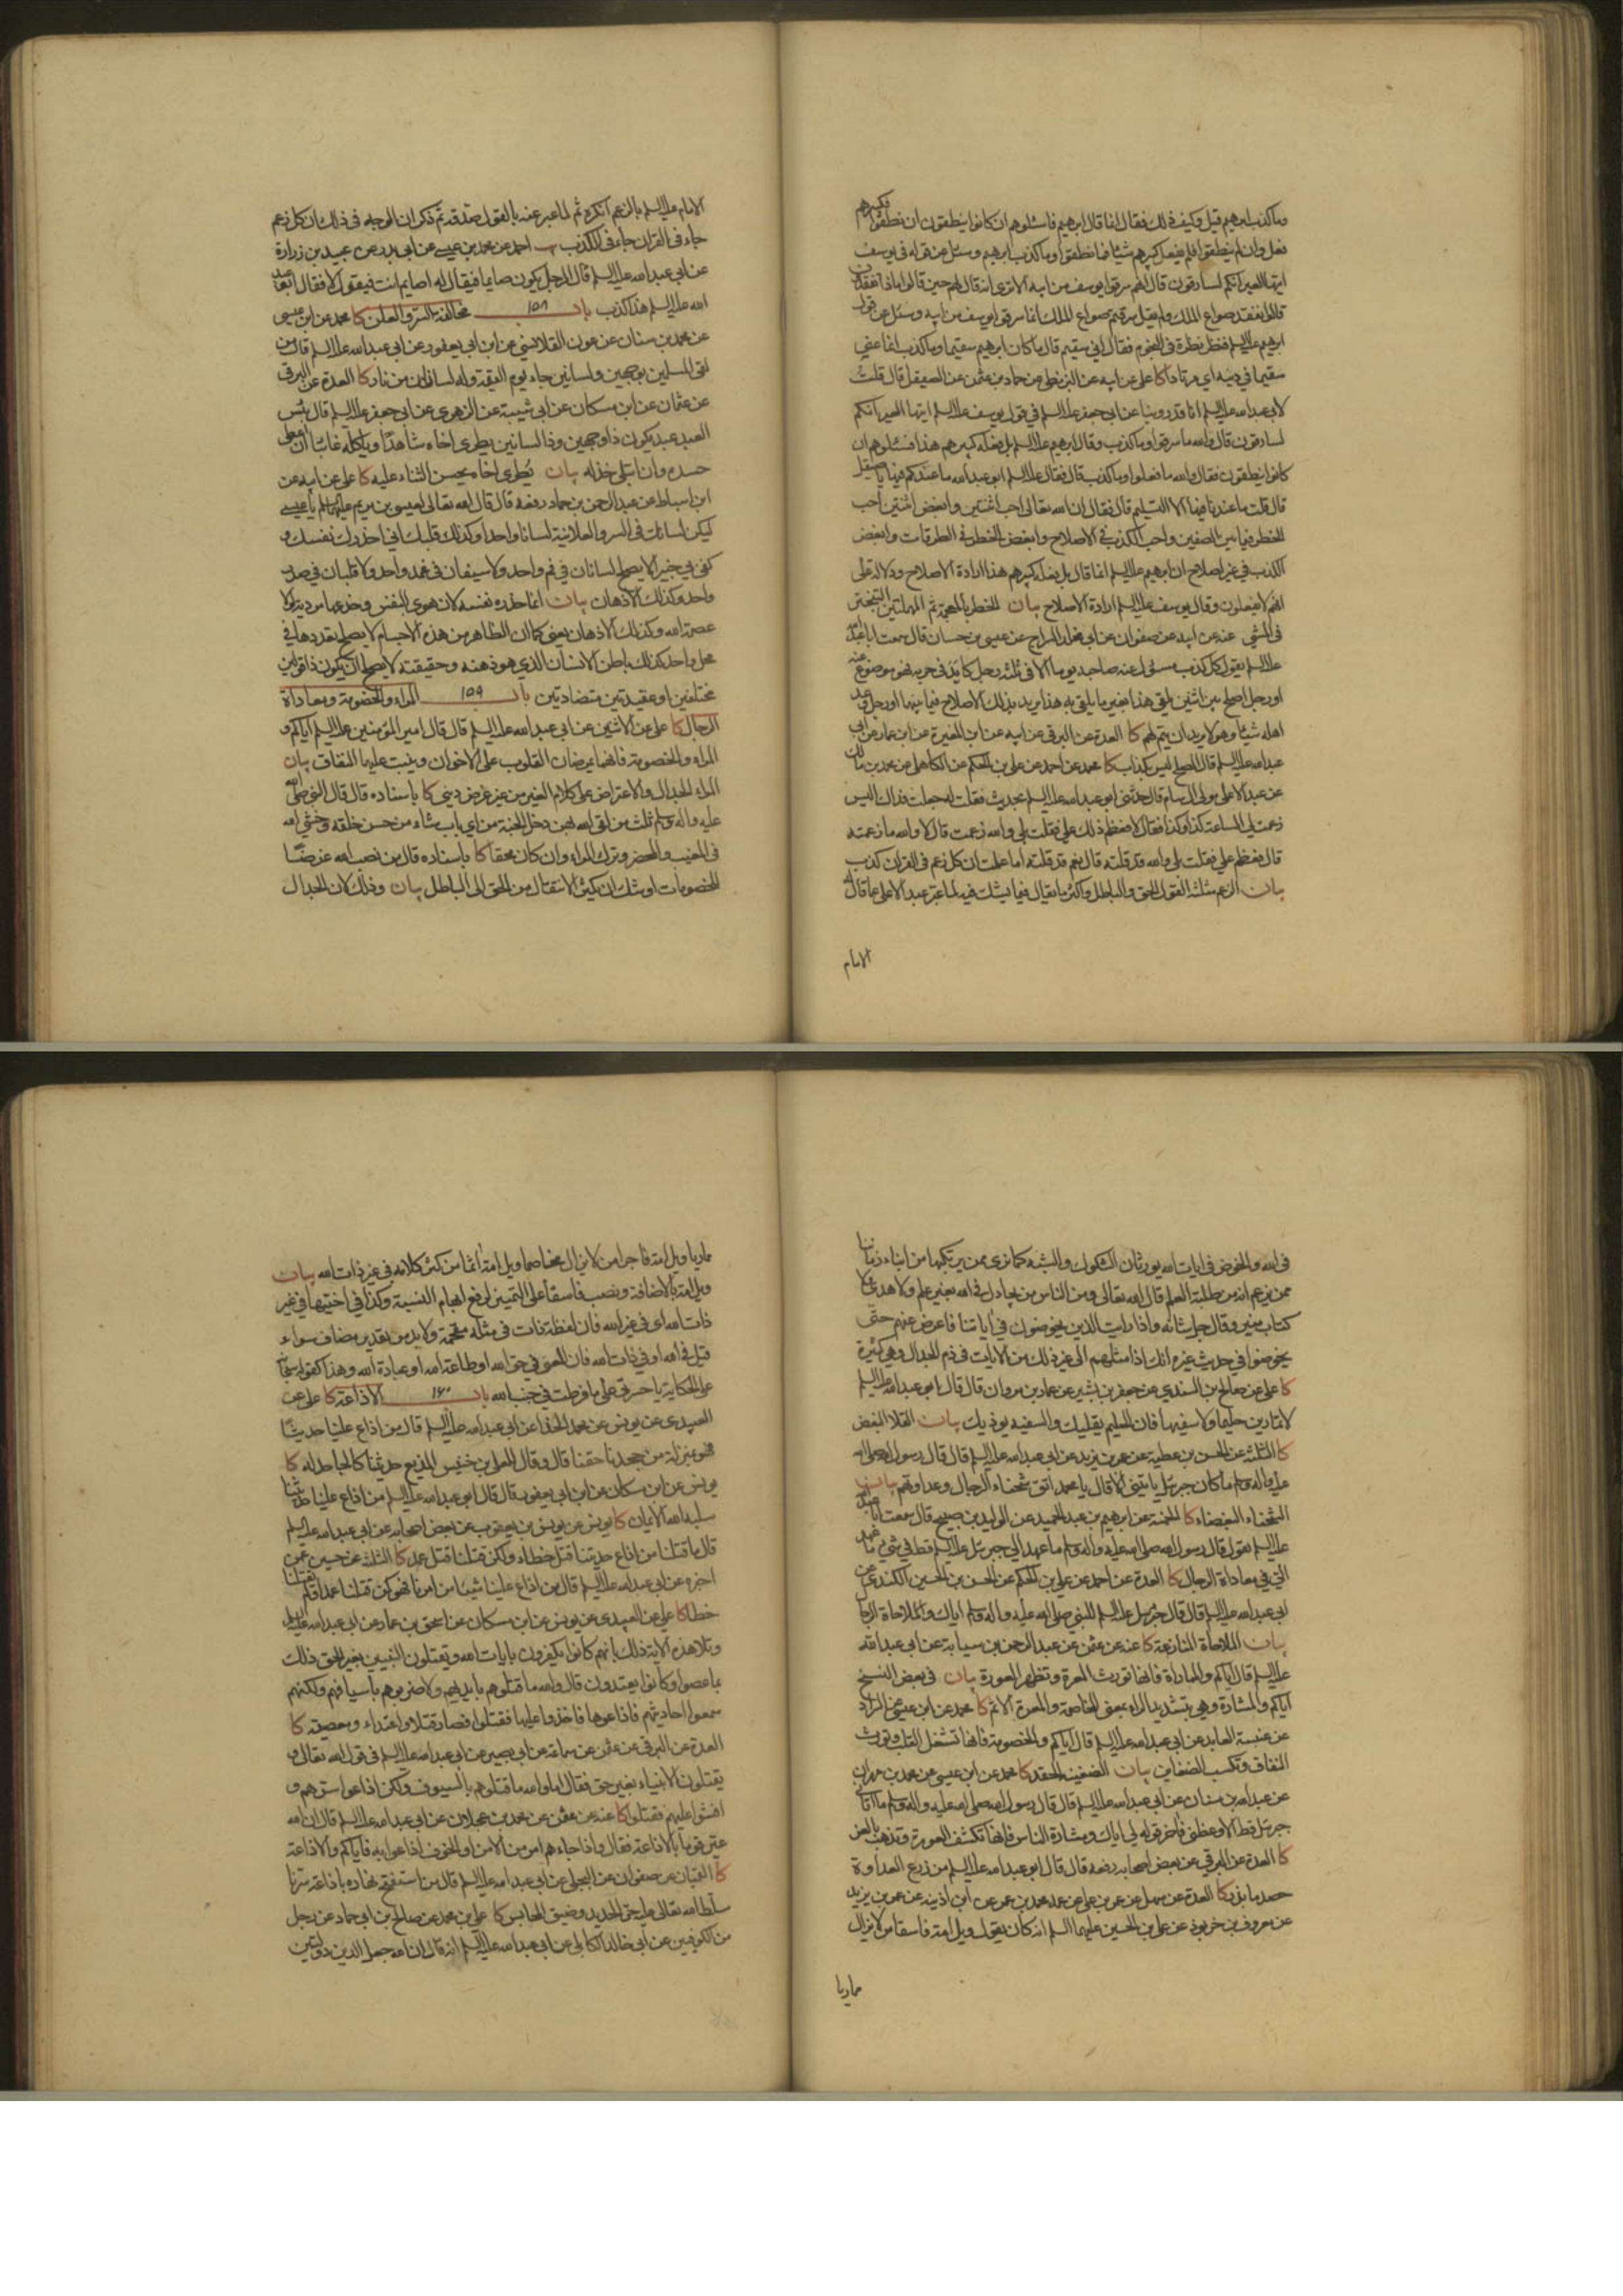 وما كذب ابرهيم قيل وكيف ذلك فقال انما قال ابرهيم فاسئلوهم ان كانوا ينطقون ان نطقوا فكبيرهم
فعل وان لم ينطقوا فلم يفعل كبيرهم شيئا فما نطقوا وما كذب ابرهيم وسئل عن قوله في يوسف
ايتها العير انكم لسارقون قال انهم سرقوا يوسف من ابيه الا ترى انه قال لهم حين قالوا ماذا تفقدون
قالوا نفقد صواع الملك ولم يقل سرقتم صواع الملك انما سرقوا يوسف من ابيه وسئل عن قول
ابرهيم عليه السلم فنظر نظرة في النجوم فقال اني سقيم قال ما كان ابرهيم سقيما وما كذب انما عنى
سقيما في دينه اي مرتادا كا علي عن ابيه عن البزنطي عن حماد بن عثمن عن الصيقل قال قلت
لابي عبد الله عليه السلم انا قد روينا عن ابي جعفر عليه السلم في قول يوسف عليه السلم ايتها العير انكم
لسارقون قال والله ما سرقوا وما كذب وقال ابرهيم عليه السلم بل فعله كبيرهم هذا فسئلوهم ان
كانوا ينطقون فقال والله ما فعلوا وما كذب قال فقال عليه السلم ابو عبد الله ما عندكم فيها يا صيقل
قال قلت ما عندنا فيها الا التسليم قال فقال ان الله تعالى احب اثنتين وابغض اثنتين احب
الخطر فيما بين الصفين واحب الكذب في الاصلاح وابغض الخطر في الطرقات وابغض
الكذب في غير اصلاح ان ابرهيم عليه السلم انما قال بل فعله كبيرهم هذا ارادة الاصلاح ودلالة على
انهم لا يفعلون وقال يوسف عليه السلم ارادة الاصلاح بيان الخطر بالمعجمة ثم المهملتين التبختر
في المشي عنه عن ابيه عن صفوان عن ابي مخلد السراج عن عيسى بن حسان قال سمعت ابا عبد الله
عليه السلم يقول كل كذب مسئول عنه صاحبه يوما الا في ثلثة رجل كايد في حربه فهو موضوع عنه
او رجل اصلح بين اثنين يلقى هذا بغير ما يلقى به هذا يريد بذلك الاصلاح فيما بينهما او رجل وعد
اهله شيئا وهو لا يريد ان يتم لهم كا العدة عن البرقي عن ابيه عن ابن المغيرة عن ابن عمار عن ابي
عبد الله عليه السلم قال المصلح ليس بكذاب كا محمد عن احمد عن علي بن الحكم عن الكاهلي عن محمد بن مالك
عن عبد الاعلى مولى ال سام قال حدثني ابو عبد الله عليه السلم بحديث فقلت له جعلت فداك اليس
زعمت لي الساعة كذا وكذا فقال لا فعظم ذلك علي فقلت بلى والله زعمت قال لا والله ما زعمته
قال فعظم علي فقلت بلى والله قد قلته قال نعم قد قلته اما علمت ان كل زعم في القران كذب
بيان الزعم مثلثة القول الحق والباطل واكثر ما يقال فيما يشك فيه لما عبر عبد الاعلى عما قال له
الامام
الامام عليه السلم بالزعم انكره ثم لما عبر عنه بالقول صدقه ثم ذكر ان الوجه في ذلك ان كل زعم
جاء في القران جاء في الكذب احمد عن محمد بن عيسى عن ابي بدر عن عبيد بن زرارة
عن ابي عبد الله عليه السلم قال الرجل يكون صايما فيقال له اصايم انت فيقول لا فقال ابو عبد
الله عليه السلم هذا كذب باب ١٥٨ مخالفة السر والعلن كا محمد عن ابن عيسى
عن محمد بن سنان عن عون القلانسي عن ابن ابي يعفور عن ابي عبد الله عليه السلم قال من
لقى المسلمين بوجهين ولسانين جاء يوم القيمة وله لسانان من نار كا العدة عن البرقي
عن عثمان عن ابن مسكان عن ابي شيبة عن الزهري عن ابي جعفر عليه السلم قال بئس
العبد عبد يكون ذا وجهين وذا لسانين يطري اخاه شاهدا وياكله غائبا ان اعطى
حسده وان ابتلي خذله بيان يطري اخاه يحسن الثناء عليه كا علي عن ابيه عن
ابن اسباط عن عبد الرحمن بن حماد رفعه قال قال الله تعالى لعيسى بن مريم عليهما السلم يا عيسى
ليكن لسانك في السر والعلانية لسانا واحدا وكذلك قلبك اني احذرك نفسك و
كفى بي خبيرا لا يصلح لسانان في فم واحد ولا سيفان في غمد واحد ولا قلبان في صدر
واحد وكذلك الاذهان بيان انما حذره نفسه لان هوى النفس وخدعها مردية لولا
عصمة الله وكذلك الاذهان يعني كما ان الظاهر من هذه الاجسام لا يصلح تعددها في
محل واحد كذلك باطن الانسان الذي هو ذهنه وحقيقته لا يصلح ان يكون ذا قولين
مختلفين او عقيدتين متضادتين باب ١٥٩ المراء والخصومة ومعاداة
الرجال كا علي عن الاثنين عن ابي عبد الله عليه السلم قال قال امير المؤمنين عليه السلم اياكم و
المراء والخصومة فانهما يمرضان القلوب على الاخوان وينبت عليهما النفاق بيان
المراء الجدال والاعتراض على كلام الغير من غير غرض ديني كا باسناده قال قال النبي صلى الله
عليه واله وسلم ثلث من لقى الله بهن دخل الجنة من اي باب شاء من حسن خلقه وخشي الله
في المغيب والمحضر وترك المراء وان كان محقا كا باسناده قال من نصب الله غرضا
للخصومات اوشك ان يكثر الانتقال من الحق الى الباطل بيان وذلك لان الجدال
في الله والخوض في ايات الله يورثان الشكوك والشبه كما نرى ممن يرتكبها من ابناء زماننا
ممن يزعم انه من طلبة العلم قال الله تعالى ومن الناس من يجادل في الله بغير علم ولا هدى ولا
كتاب منير وقال جل شانه واذا رايت الذين يخوضون في اياتنا فاعرض عنهم حتى
يخوضوا في حديث غيره انك اذا مثلهم الى غير ذلك من الايات في ذم الجدال وهي كثيرة
كا علي عن صالح بن السندي عن جعفر بن بشير عن عمار بن مروان قال قال ابو عبد الله عليه السلم
لا تمارين حليما ولا سفيها فان الحليم يقليك والسفيه يوذيك بيان القلا البغض
كا الثلثة عن الحسن بن عطية عن عمر بن يزيد عن ابي عبد الله عليه السلم قال قال رسول الله صلى الله
عليه واله وسلم ما كان جبرئيل ياتيني الا قال يا محمد اتق شحناء الرجال وعداوتهم بيان
الشحناء البغضاء كا الخمسة عن ابرهيم بن عبد الحميد عن الوليد بن صبيح قال سمعت ابا عبد الله
عليه السلم يقول قال رسول الله صلى الله عليه واله وسلم ما عهد الي جبرئيل عليه السلم قط في شيء ما عهد
الي في معاداة الرجال كا العدة عن احمد عن علي بن الحكم عن الحسن بن الحسين الكندي عن
ابي عبد الله عليه السلم قال قال جبرئيل عليه السلم للنبي صلى الله عليه واله وسلم اياك والملاحاة الرجال
بيان الملاحاة المنازعة كا عنه عن عثمن عن عبد الرحمن بن سيابة عن ابي عبد الله
عليه السلم قال اياكم والماراة فانها تورث المعرة وتظهر العورة بيان في بعض النسخ
اياكم والمشارة وهي بتشديد الراء بمعنى المخاصمة والمعرة الاثم كا محمد عن ابن عيسى عن السراد
عن عنبسة العابد عن ابي عبد الله عليه السلم قال اياكم والخصومة فانها تشغل القلب وتورث
النفاق وتكسب الضغاين بيان الضغينة الحقد كا محمد عن ابن عيسى عن محمد بن مهران
عن عبد الله بن سنان عن ابي عبد الله عليه السلم قال قال رسول الله صلى الله عليه واله وسلم ما اتاني
جبرئيل قط الا وعظني فاخر قوله لي اياك ومشارة الناس فانها تكشف العورة وتذهب بالعز
كا العدة عن البرقي عن بعض اصحابه رفعه قال قال ابو عبد الله عليه السلم من زرع العداوة
حصد ما بذر كا العدة عن سهل عن عمر بن علي عن عمه محمد بن عمر عن ابن اذينه عن عمر بن يزيد
عن معروف بن خربوذ عن علي بن الحسين عليهما السلم انه كان يقول ويل امه فاسقا من لا يزال
مماريا
مماريا ويل امه فاجرا من لا يزال مخاصما ويل امه اثما من كثر كلامه في غير ذات الله بيان
ويل امه بالاضافة ونصب فاسقا على التمييز لرفع ابهام النسبة وكذا في اختيها في غير
ذات الله اي في غير الله فان لفظة ذات في مثله مقحمة ولا بد من تقدير مضاف سواء
قيل في الله او في ذات الله فان المعنى في حق الله او طاعة الله او عبادة الله وهذا كقوله سبحانه
على الحكاية يا حسرتى على ما فرطت في جنب الله باب ١٦٠ الاذاعة كا علي عن
العبيدي عن يونس عن محمد الخزاز عن ابي عبد الله عليه السلم قال من اذاع علينا حديثنا
فهو بمنزلة من جحدنا حقنا قال وقال للمعلى بن خنيس المذيع حديثنا كالجاحد له كا
يونس عن ابن مسكان عن ابن ابي يعفور قال قال ابو عبد الله عليه السلم من اذاع علينا حديثنا
سلبه الله الايمان كا يونس عن يونس بن يعقوب عن بعض اصحابه عن ابي عبد الله عليه السلم
قال ما قتلنا من اذاع حديثنا قتل خطاء ولكن قتلنا قتل عمد كا الثلثة عن حسين عمن
اخبره عن ابي عبد الله عليه السلم قال من اذاع علينا شيئا من امرنا فهو كمن قتلنا عمدا ولم يقتلنا
خطا كا علي عن العبيدي عن يونس عن ابن مسكان عن اسحق بن عمار عن ابي عبد الله عليه السلم
وتلا هذه الاية ذلك بانهم كانوا يكفرون بايات الله ويقتلون النبيين بغير الحق ذلك
بما عصوا وكانوا يعتدون قال والله ما قتلوهم بايديهم ولا ضربوهم باسيافهم ولكنهم
سمعوا احاديثهم فاذاعوها فاخذوا عليها فقتلوا فصار قتلا واعتداء ومعصية كا
العدة عن البرقي عن عثمن عن سماعة عن ابي بصير عن ابي عبد الله عليه السلم في قول الله تعالى و
يقتلون الانبياء بغير حق فقال اما والله ما قتلوهم بالسيوف ولكن اذاعوا سرهم و
افشوا عليهم فقتلوا كا عنه عن عثمن عن محمد بن عجلان عن ابي عبد الله عليه السلم قال ان الله
عير قوما بالاذاعة فقال واذا جاءهم امر من الامن او الخوف اذاعوا به فاياكم والاذاعة
كا القميان عن صفوان عن البجلي عن ابي عبد الله عليه السلم قال من استفتح نهاره باذاعة سرنا
سلط الله تعالى عليه حر الحديد وضيق المحابس كا علي بن محمد عن صالح بن ابي حماد عن رجل
من الكوفيين عن ابي خالد الكابلي عن ابي عبد الله عليه السلم انه قال ان الله جعل الدين دولتين